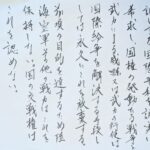 希求し、国権の発動たる
武力による威嚇又は武力の行使は
国際紛争を解決する手段と
しては永久にこれを放棄す
前項の目的を達するため陸
海空軍その他の戦力はこれを
保持しない。国の交戦権は
これを認めない。